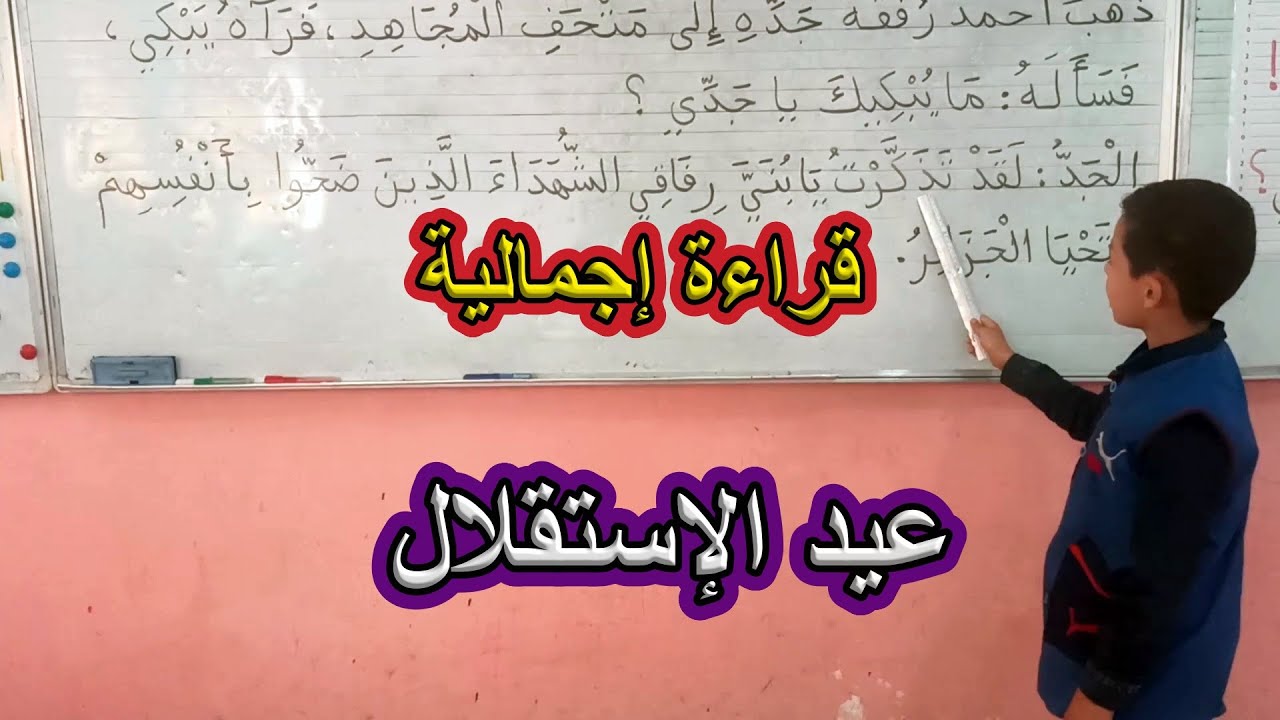 ذَهَبَ أحمد رُفقة جَدِّهِ إِلى مَتْحَفِ الْمُجَاهِدِ، فَرَآهُ يَبْكِي،
فَسَأَلَهُ: مَا يُبْكِيكَ يا جَدِّي ؟
الْجَدُّ: لَقَدْ تَذَكَّرْتُ يَابُنَيَّ رِفَاقِي الشُّهَدَاءَ الَّذِينَ ضَحُّوا بِأَنْفُسِهِمْ
تَحْيَا الْجَزَائِرُ.
قراءة إجمالية
عيد الإستقلال
!
؟